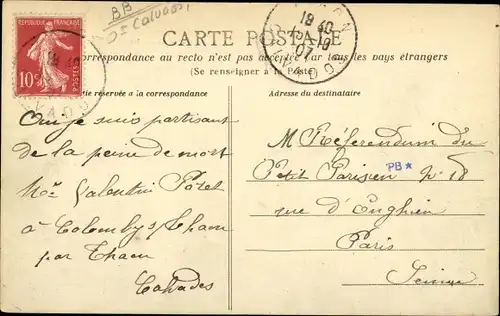 BB
RÉPUBLIQUE FRANÇAISE
10c POSTES
18 30
07
CARTE POSTALE
correspondance au recto n'est pas acceptée par tous les pays étrangers
(Se renseigner à la Poste)
tie réservée à la correspondance
Adresse du destinataire
Oui je suis partisant
de la peine de mort
Valentin
à Colomby s/ Thaon
par Thaon
Calvados
M Référendum du
Petit Parisien No 18
PB★
rue d'Enghien
Paris
Seine